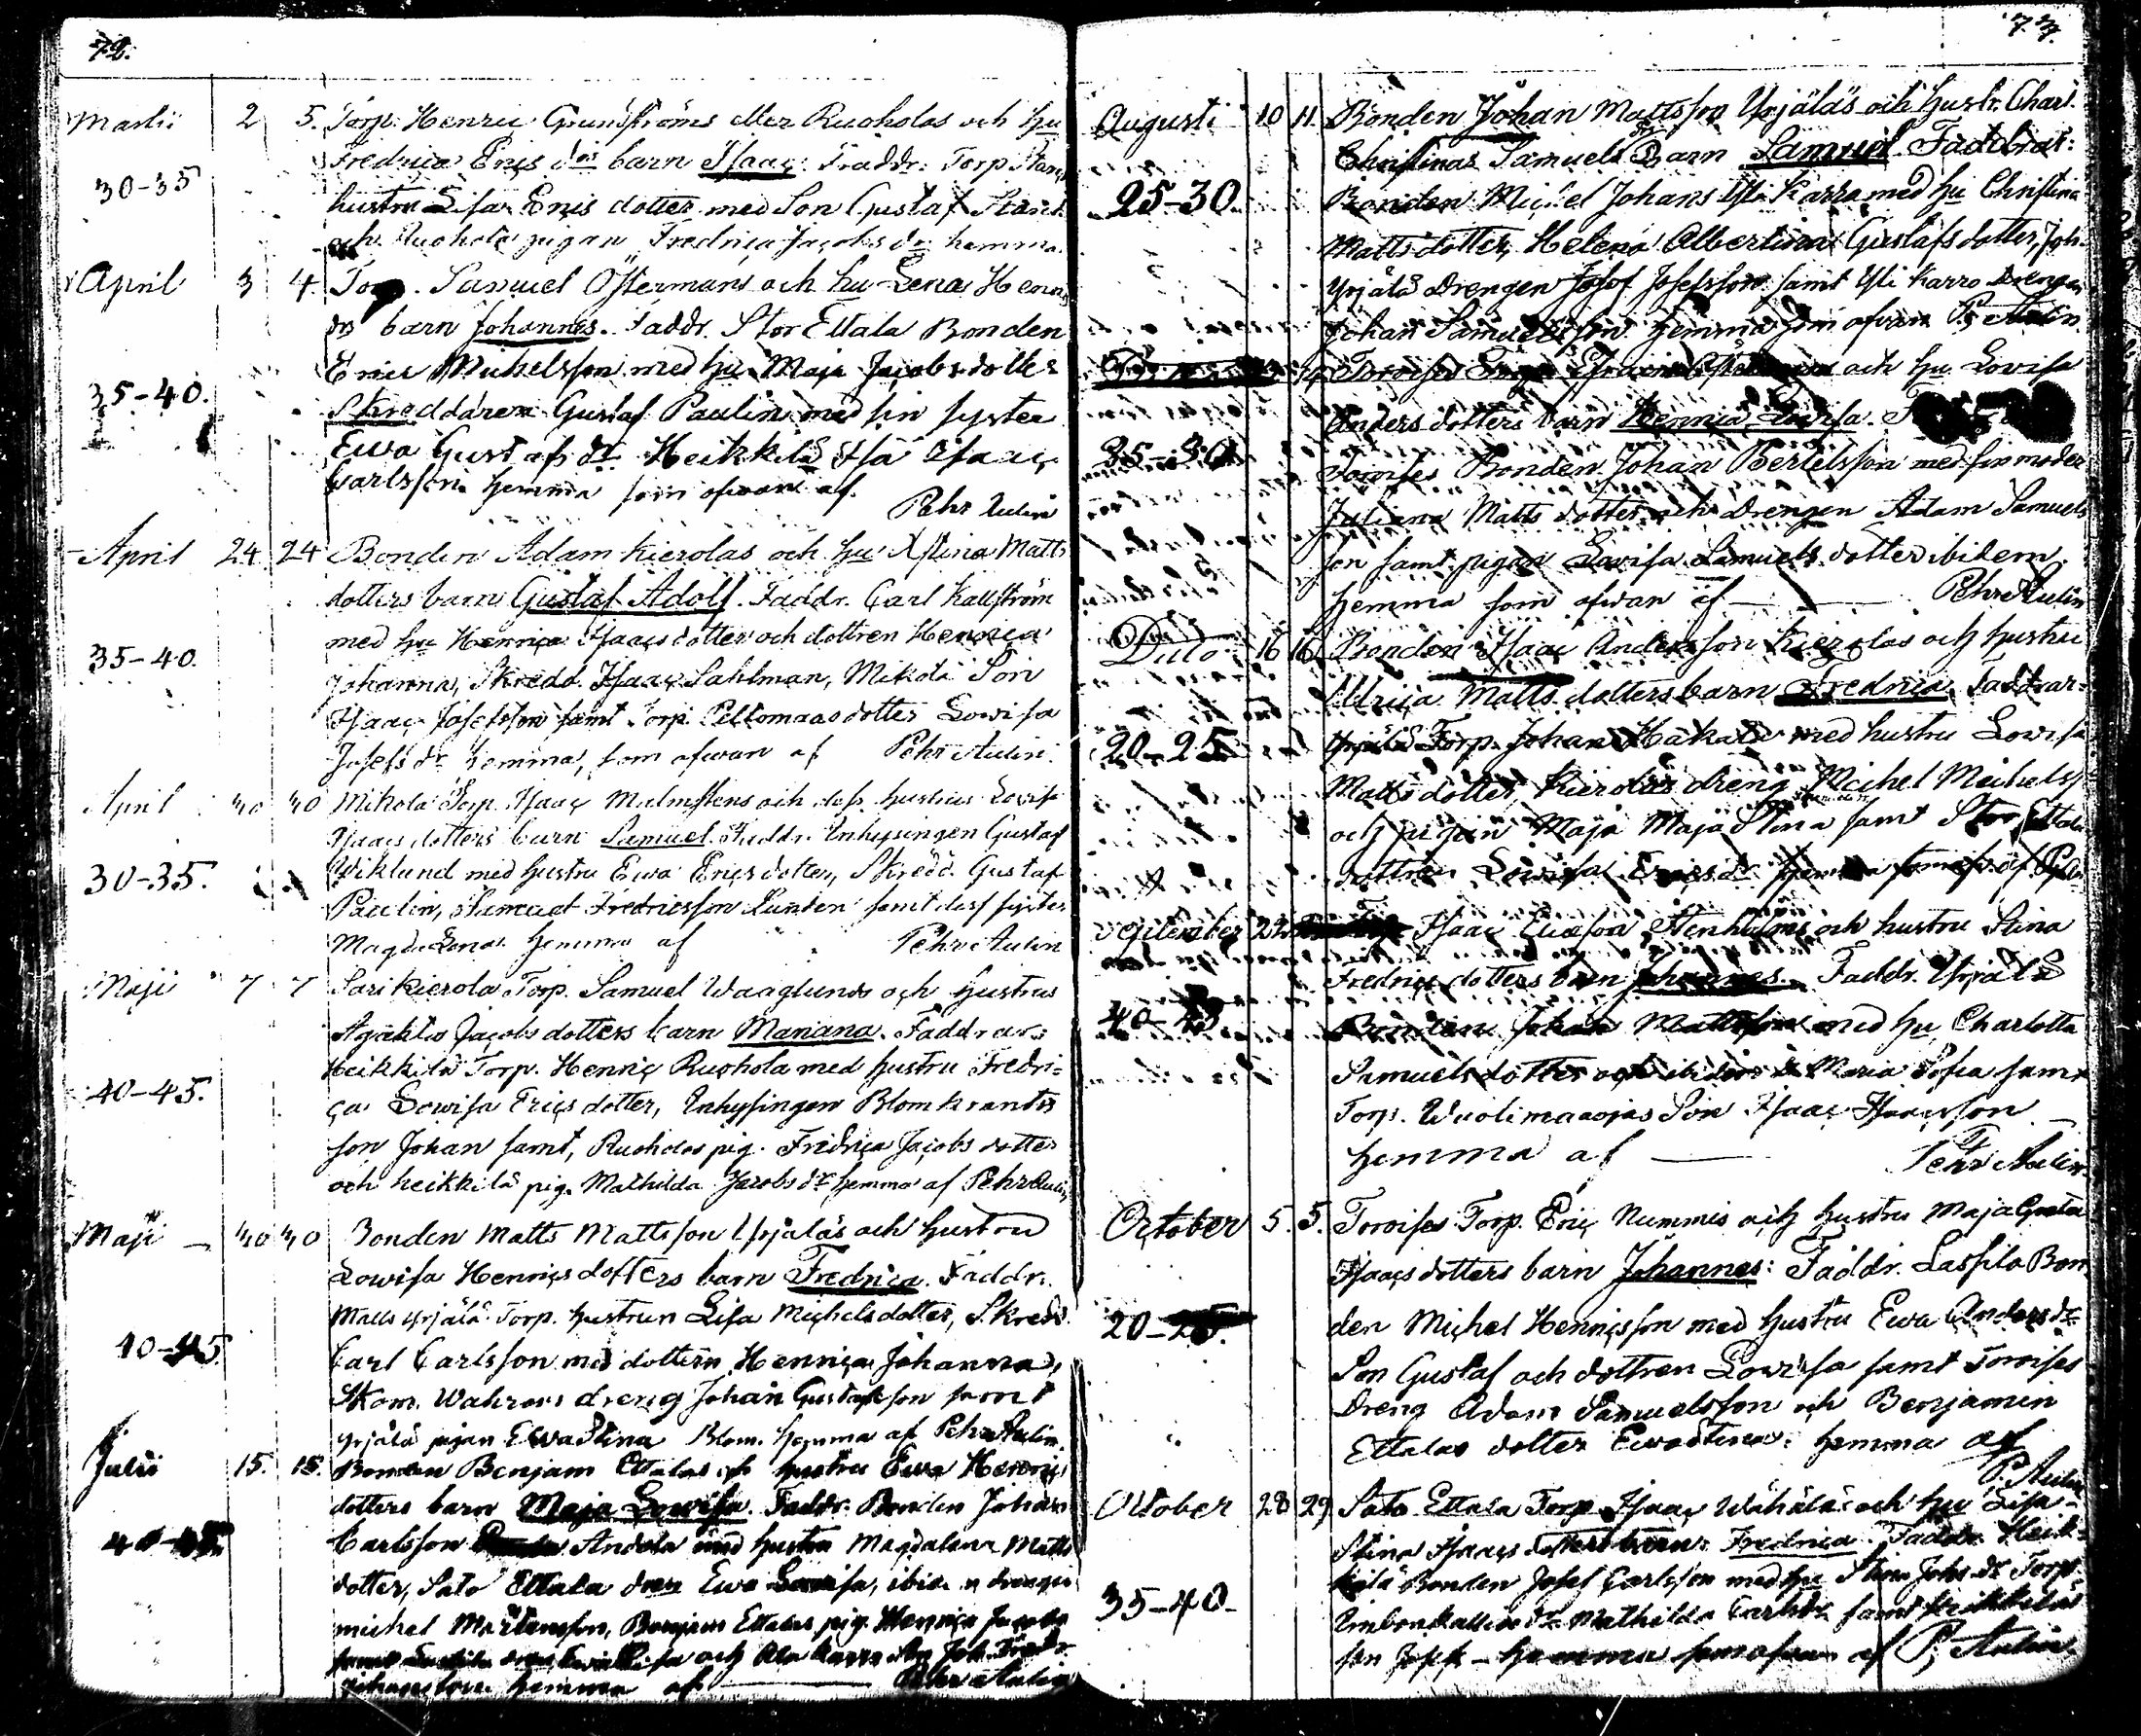 72.
Martii 2 5. Torp. Henric Grundströms eller Ruoholas och hu
Fredrica Erics dr barn Isaac. Faddr. Torp
30-35
hustru Lisa Erics dotter med Son Gustaf
och Ruohola pigan Fredrica Jacobs dr hemma
April 3 4. Torp. Samuel Östermans och hu Lena Henrics
drs barn Johannes. Faddr. Stor Ettala Bonden
Eric Michelsson med hu Maja Jacobs dotter
35-40.
Skreddaren Gustaf Paulin med sin syster
Ewa Gustafs dr Heikkilä Isaac
Carlsson hemma som ofwan af
Pehr Aulin
April 24 24 Bonden Adam Kierolas och hu Stina Matts
dotters barn Gustaf Adolf. Faddr. Carl Kallström
med hu Henrica Isaacs dotter och dottren Henrica
35-40.
Johanna, Skredd. Isaac Sahlman, Mikola Son
Isaac Josefsson samt Torp. Peltomaas dotter Lowisa
Josefs dr hemma, som ofwan af Pehr Aulin
April 30 30 Mikola Torp. Isaac Malmstens och dess hustrus Lovisa
Isaacs dotters barn Samuel. Faddr. Inhysingen Gustaf
30-35.
Wiklund med hustru Ewa Erics dotter, Skredd. Gustaf
Paulin, Samuel Fredricsson Lunden samt dess syster
Magda Lena. hemma af Pehr Aulin
Maji 7 7 Sarikierola Torp. Samuel Waaglunds och Hustrus
Agata Jacobs dotters barn Mariana. Faddrar:
Heikkilä Torp. Henric Ruohola med hustru Fredri-
40-45.
ca Lowisa Erics dotter, Inhysingen Blomkrants
son Johan samt, Ruoholas pig. Fredrica Jacobs dotter
och heikkilä pig. Mathilda Jacobs dr hemma af Pehr Aulin
Maji 30 30 Bonden Matts Mattsson Yrjäläs och hustru
Lowisa Henrics dotters barn Fredrica. Faddr.
Matts Yrjälä Torp. hustrun Lisa Michelsdotter, Skredd.
40-45.
Carl Carlsson med dottern Henrica Johanna,
Skom. Wahrens dreng Johan Gustafsson samt
Yrjälä pigan Ewa Stina Blom. hemma af Pehr Aulin
Julii 15. 15. Bonden Benjam Ettalas och hustru Ewa Henrics
dotters barn Maja Lowisa. Faddr. Bonden Johan
40-45.
Carlsson Andola med hustru Magdalena Matts
dotter, Sato Ettala Ewa Lowisa, drengen
michel Mårtensson, Benjam Ettalas pig. Henrica Jacobs
hemma af Pehr Aulin
73.
Augusti 10 11. Bonden Johan Mattsson Yrjäläs och hustr. Charl.
Christinas Samuels dr Barn Samuel. Faddrar:
25-30.
Bonden Michel Johans Yli Karra med hu Christina
Matts dotter, Helena Albertina Gustafs dotter, Joh.
Yrjälä Drengen Josef Josefsson samt Yli Karro Drengen
Johan Samuelsson. hemma som ofwan P. Aulin
Toroises och hu Lovisa
Anders dotters barn Henrica Lovisa.
25-30
Toroises Bonden Johan Bertelsson med sin moder
Juliana Matts dotter och Drengen Adam Samuels
son samt pigan Lovisa Samuels dotter ibidem
hemma som ofwan af Pehr Aulin
Dito 16 16 Bonden Isaac Andersson Kierolas och hustru
Ulrica Matts dotters barn Fredrica. Faddrar:
20-25
Yrjälä Torp. Johan Hakala med hustru Lowisa
Matts dotter, Kierolas dreng Michel Michels
och pigan Maja Maja Stina samt Stor Ettala
dottren Lowisa Erics dr hemma af
September 22 Isaac Ericsson Stenholms och hustru Stina
Fredrics dotters barn Johannes. Faddr. Yrjälä
40-45
Bonden Johan Mattsson med hu Charlotta
Samuels dotter och Maria Sofia samt
Torp. Wuolimaaojas Son Isaac Isaacsson
hemma af Pehr Aulin
October 5. 5. Toroises Torp. Eric Nummis och hustru Maja Greta
Isaacs dotters barn Johannes: Faddr. Lassila Bon
20-25.
den Michel Henricsson med hustru Ewa Anders dr
Son Gustaf och dottren Lowisa samt Toroises
Dreng Adam Samuelsson och Benjamin
Ettalas dotter Ewa Stina: hemma af
P. Aulin
October 28 29 Sato Ettala Torp. Isaac Wähäläs och hu Lisa
Stina Isaacs dotters barn: Fredrica. Faddr. Heik-
kilä Bonden Josef Carlsson med hu Stina Johs dr Torp.
35-40-
Mathilda Carls dr samt Heikkilä
son Josef - hemma som ofwan af P. Aulin